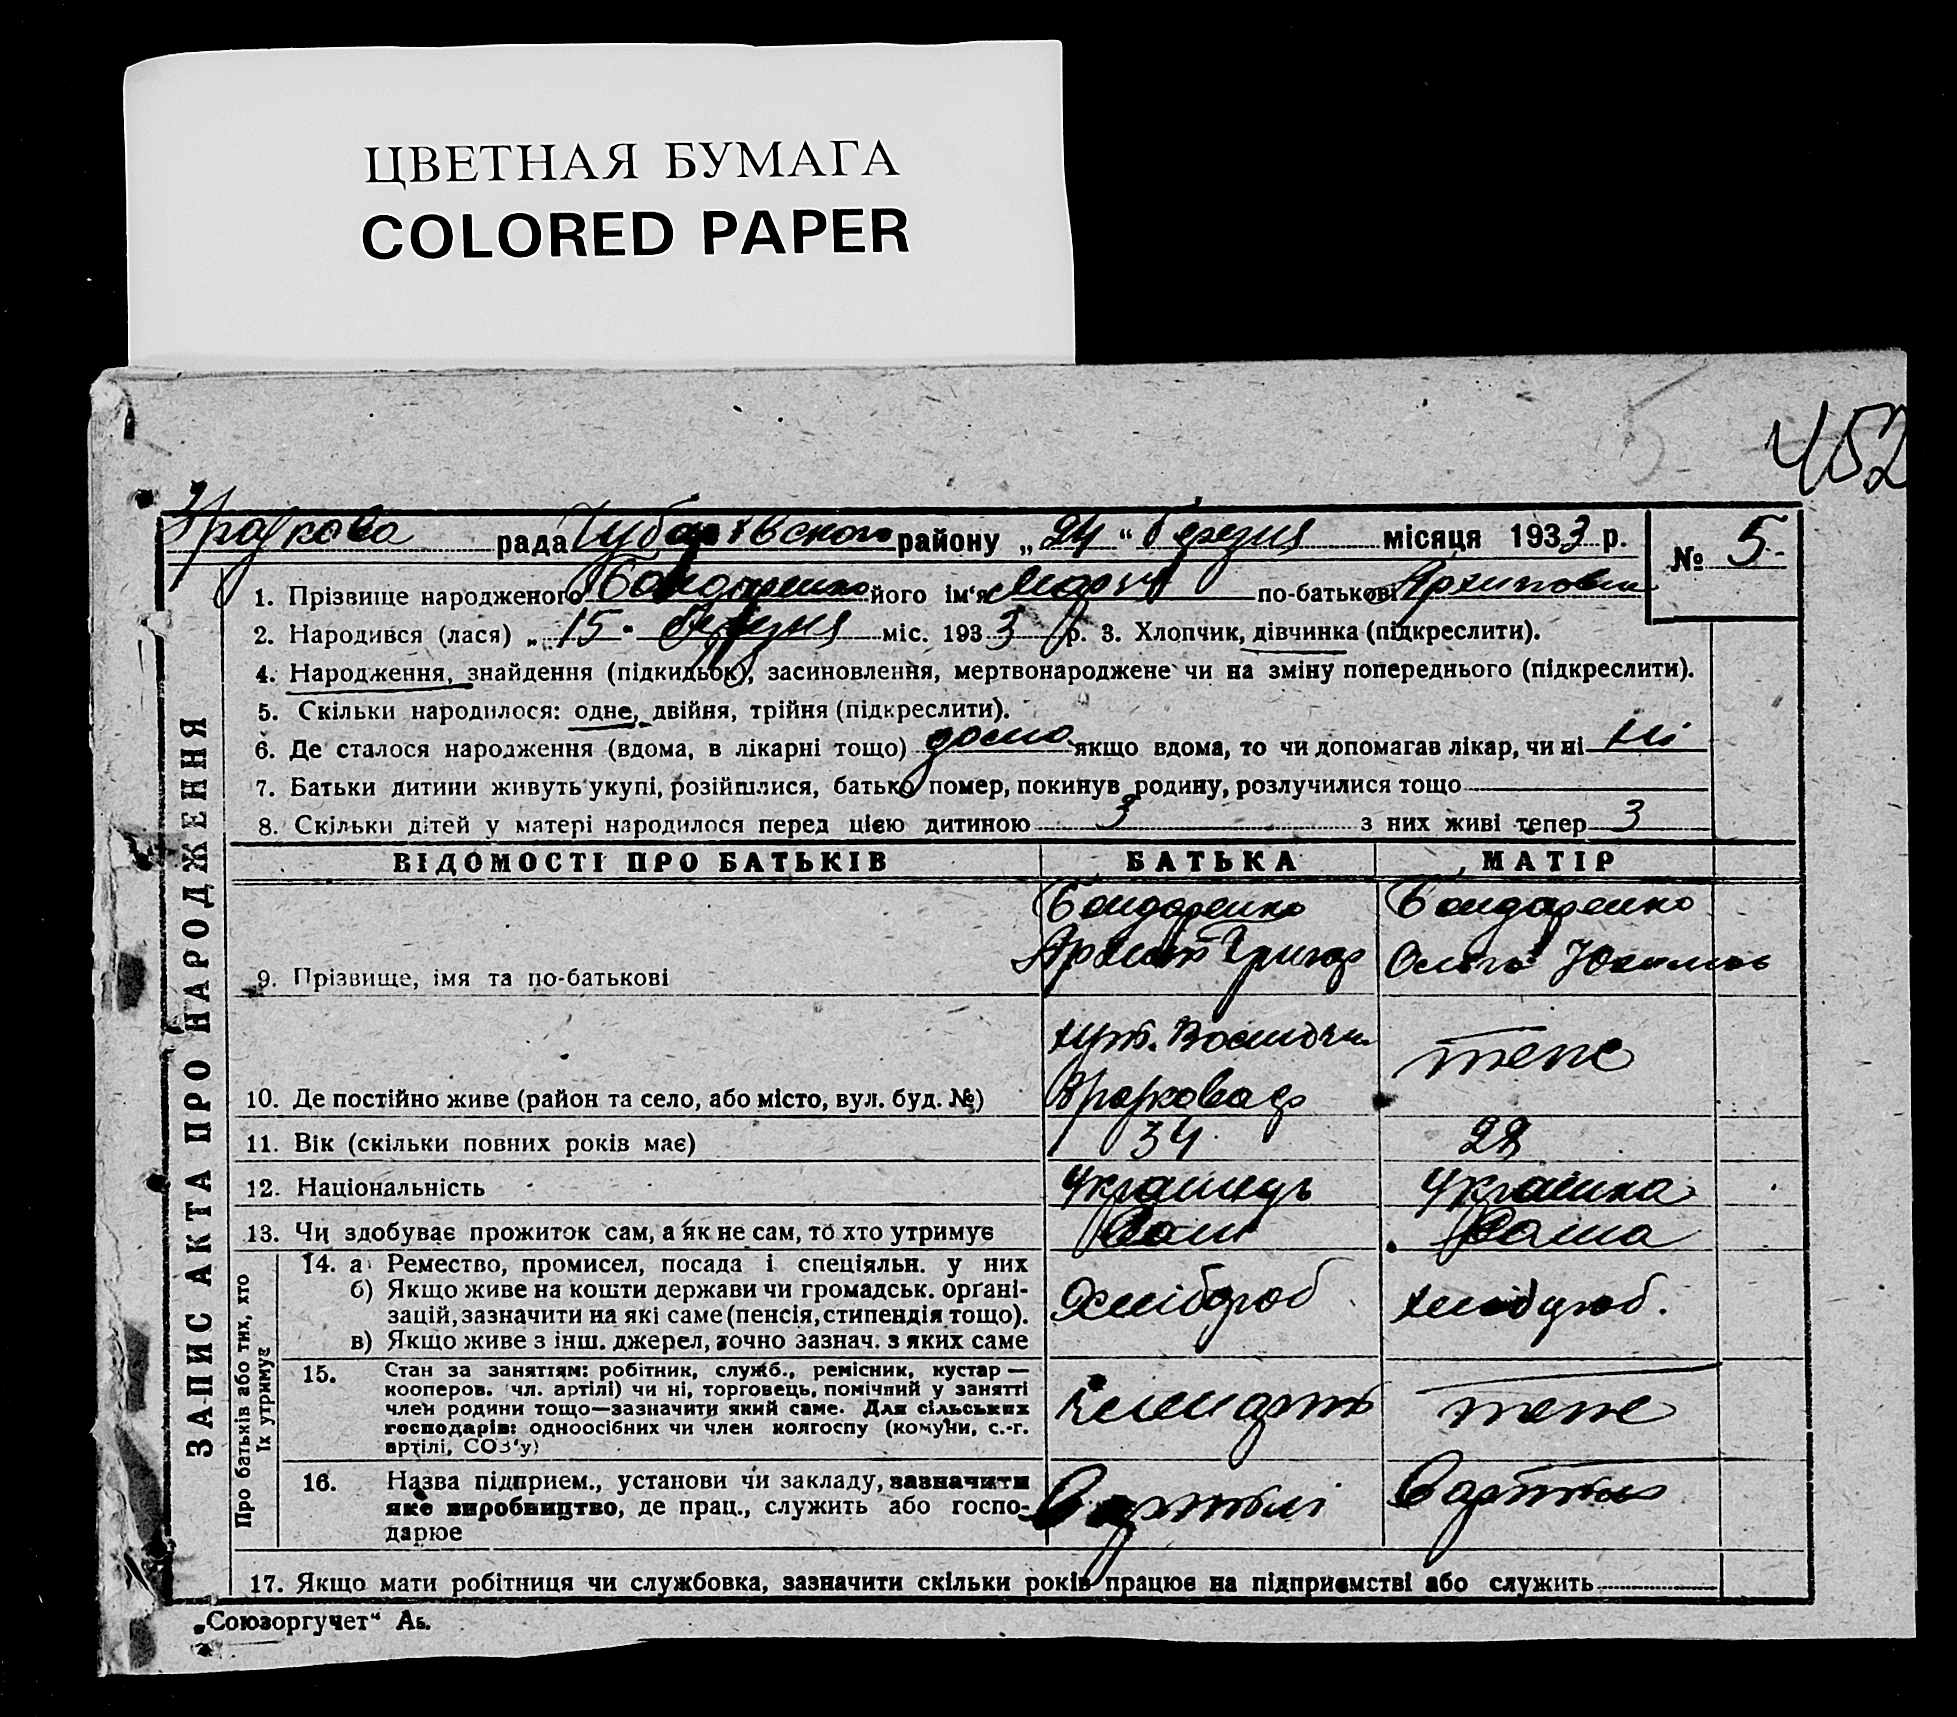 ЦВЕТНАЯ БУМАГА
COLORED PAPER
452
рада Чубарівского району „24“ березня місяця 1933 р.
№ 5
1. Прізвище народженого Бондаренко його ім'я Марія по-батькові Архиповна
2. Народився (лася) „15" березня міс. 1933 р. 3. Хлопчик, дівчинка (підкреслити).
4. Народження, знайдення (підкидьок), засиновлення, мертвонароджене чи на зміну попереднього (підкреслити).
5. Скільки народилося: одне, двійня, трійня (підкреслити).
6. Де сталося народження (вдома, в лікарні тощо) дома якщо вдома, то чи допомагав лікар, чи ні ні
7. Батьки дитини живуть укупі, розійшлися, батько помер, покинув родину, розлучилися тощо
8. Скільки дітей у матері народилося перед цією дитиною 3 з них живі тепер 3
ЗАПИС АКТА ПРО НАРОДЖЕННЯ
ВІДОМОСТІ ПРО БАТЬКІВ БАТЬКА МАТІР
Бондаренко Бондаренко
9. Прізвище, імя та по-батькові Архип Григор Ольга
хут.
10. Де постійно живе (район та село, або місто, вул. буд. №) теж
11. Вік (скільки повних років має) 34 28
12. Національність Українець Українка
13. Чи здобуває прожиток сам, а як не сам, то хто утримує Сам Сама
Про батьків або тих, хто
їх утримує
14. а Ремество, промисел, посада і спеціяльн. у них
б) Якщо живе на кошти держави чи громадськ. орґані-
зацій, зазначити на які саме (пенсія, стипендія тощо). Хлібороб хлібороб.
в) Якщо живе з інш. джерел, точно зазнач. з яких саме
15. Стан за заняттям: робітник, служб., ремісник, кустар —
кооперов. чл. артілі) чи ні, торговець, помічний у занятті
член родини тощо—зазначити який саме. Для сільських теж
господарів: одноосібних чи член колгоспу (комуни, с.-г.
артілі, СОЗ'у)
16. Назва підприєм., установи чи закладу, зазначити
яке виробництво, де прац., служить або госпо- В артілі В артілі
дарює
17. Якщо мати робітниця чи службовка, зазначити скільки років працює на підприємстві або служить
„Союзоргучет“ Аь.